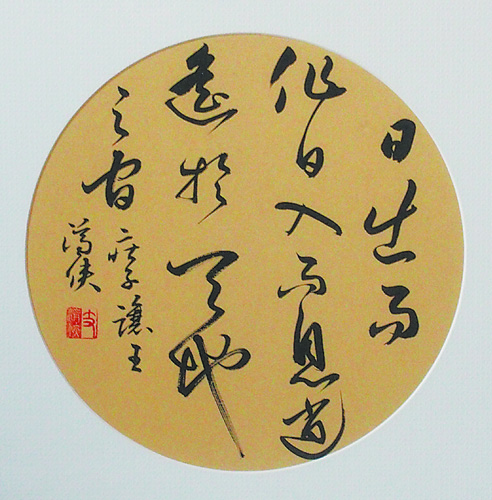 日出而
作日入而息逍
遥於天地
之间
庄子讓王